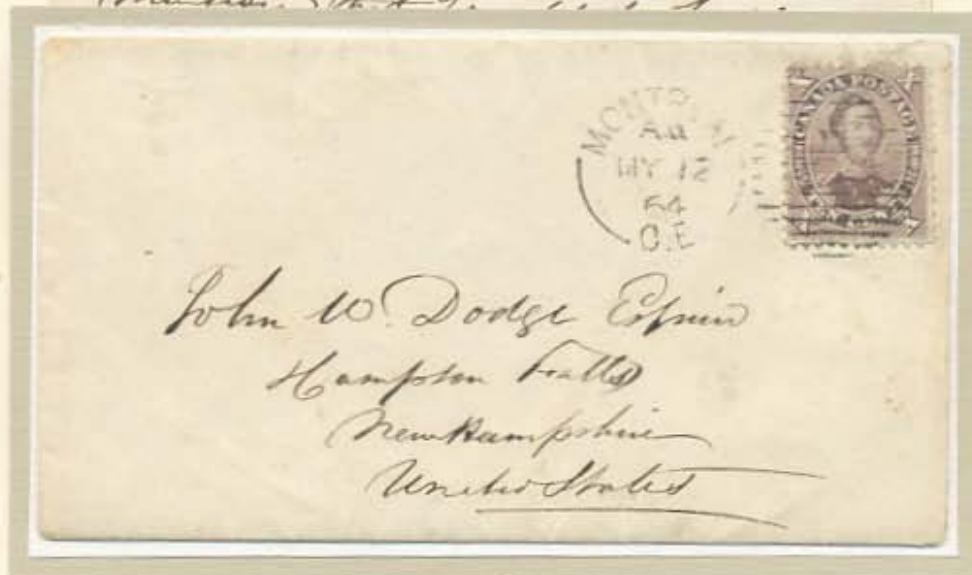 MONTREAL
AM
MY 12
64
C.E
CANADA POSTAGE
John W. Dodge Esquire
Hampton Falls
New Hampshire
United States